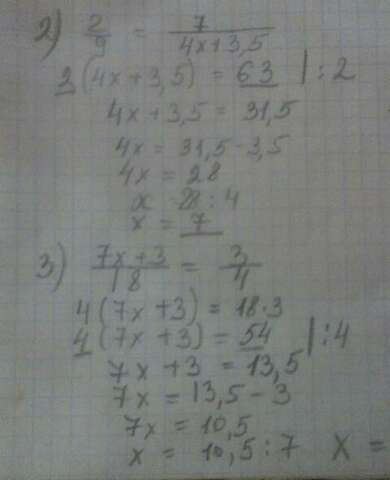 2) 2/9 = 7/(4x+3,5)
2(4x+3,5) = 63 | : 2
4x+3,5 = 31,5
4x = 31,5-3,5
4x = 28
x 28 : 4
x = 7
3) (7x+3)/18 = 3/4
4(7x+3) = 18·3
4(7x+3) = 54 | : 4
7x+3 = 13,5
7x = 13,5-3
7x = 10,5
x = 10,5 : 7 x =